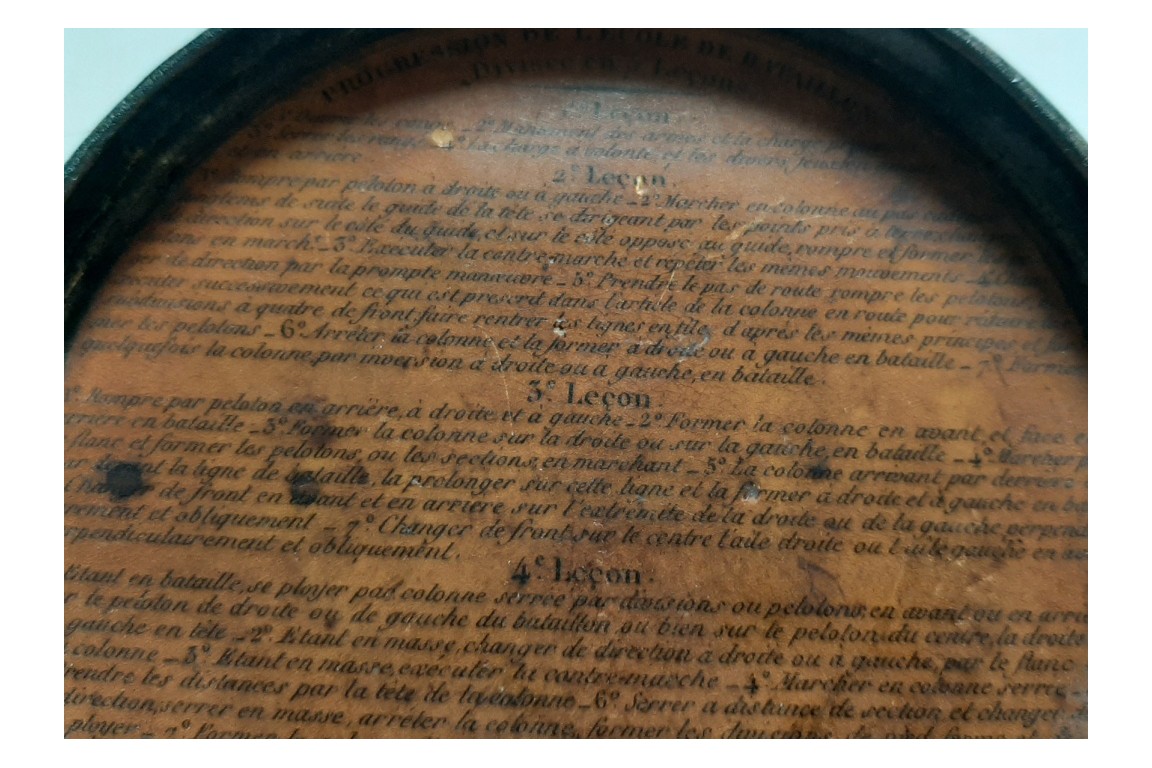 PROGRESSION DE L'ECOLE DE BATAILLON
Divisée en 5 Leçons
1e Leçon.
2° Maniement des armes et la charge
Serrer les rangs _ 4° La charge à volonté, et les divers feux
en arriere
2e Leçon.
Rompre par peloton à droite ou à gauche _ 2° Marcher en colonne au pas
de suite le guide de la tête se dirigeant par les points pris à terre
direction sur le côté du guide, et sur le côté opposé au guide, rompre et former
en marche _ 3° Executer la contre-marche et répéter les mêmes mouvements _ 4°
de direction par la prompte manœuvre _ 5° Prendre le pas de route rompre les pelotons
successivement ce qui est prescrit dans l'article de la colonne en route pour
subdivisions à quatre de front, faire rentrer les lignes en file, d'après les mêmes principes et
les pelotons _ 6° Arrêter la colonne et la former à droite ou à gauche en bataille _ 7° Former
quelquefois la colonne, par inversion à droite ou à gauche, en bataille.
3e Leçon.
1° Rompre par peloton en arrière, à droite et à gauche _ 2° Former la colonne en avant, et face
en bataille _ 3° Former la colonne sur la droite ou sur la gauche, en bataille _ 4° Marcher
flanc et former les pelotons, ou les sections, en marchant _ 5° La colonne arrivant par derriere
la ligne de bataille, la prolonger sur cette ligne et la former à droite et à gauche en
Changer de front en avant et en arriere sur l'extrémité de la droite ou de la gauche
et obliquement _ 7° Changer de front, sur le centre l'aile droite ou l'aile gauche en
et obliquement.
4e Leçon.
Etant en bataille, se ployer par colonne serrée par divisions ou pelotons, en avant ou en
le peloton de droite ou de gauche du bataillon, ou bien sur le peloton, du centre, la droite
gauche en tête _ 2° Etant en masse, changer de direction à droite ou à gauche, par le flanc
colonne _ 3° Etant en masse, exécuter la contre-marche _ 4° Marcher en colonne serrée
les distances par la tête de la colonne _ 6° Serrer à distance de section et changer
direction, serrer en masse, arrêter la colonne, former les divisions
ployer _ 7° Former